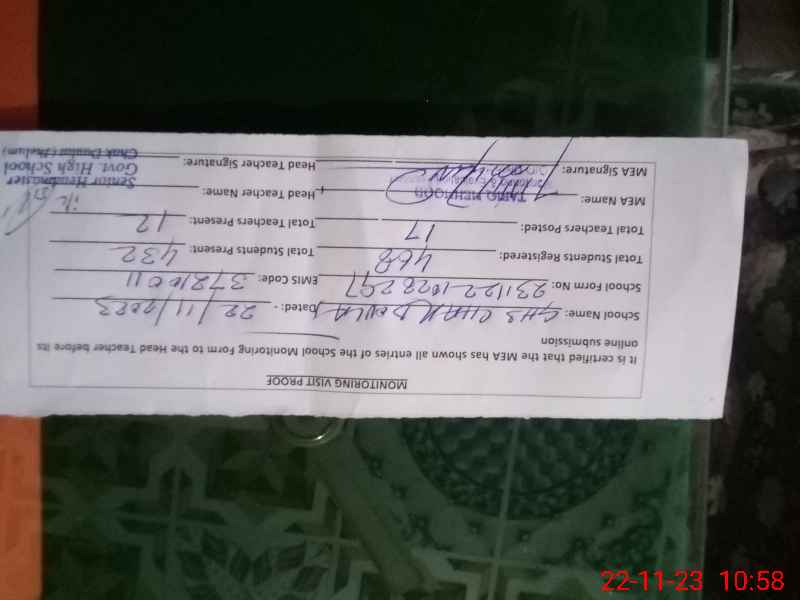 MONITORING VISIT PROOF
It is certified that the MEA has shown all entries of the School Monitoring Form to the Head Teacher before its
online submission
School Name: GHS CHAK Dated: - 22/11/2023
School Form No: EMIS Code: 37210011
Total Students Registered: 468 Total Students Present: 432
Total Teachers Posted: 17 Total Teachers Present: 12
MEA Name: TARIQ MEHMOOD Head Teacher Name:
MEA Signature: Head Teacher Signature:
Senior Headmaster
Govt. High School
Chak (Jhelum)
22-11-23 10:58